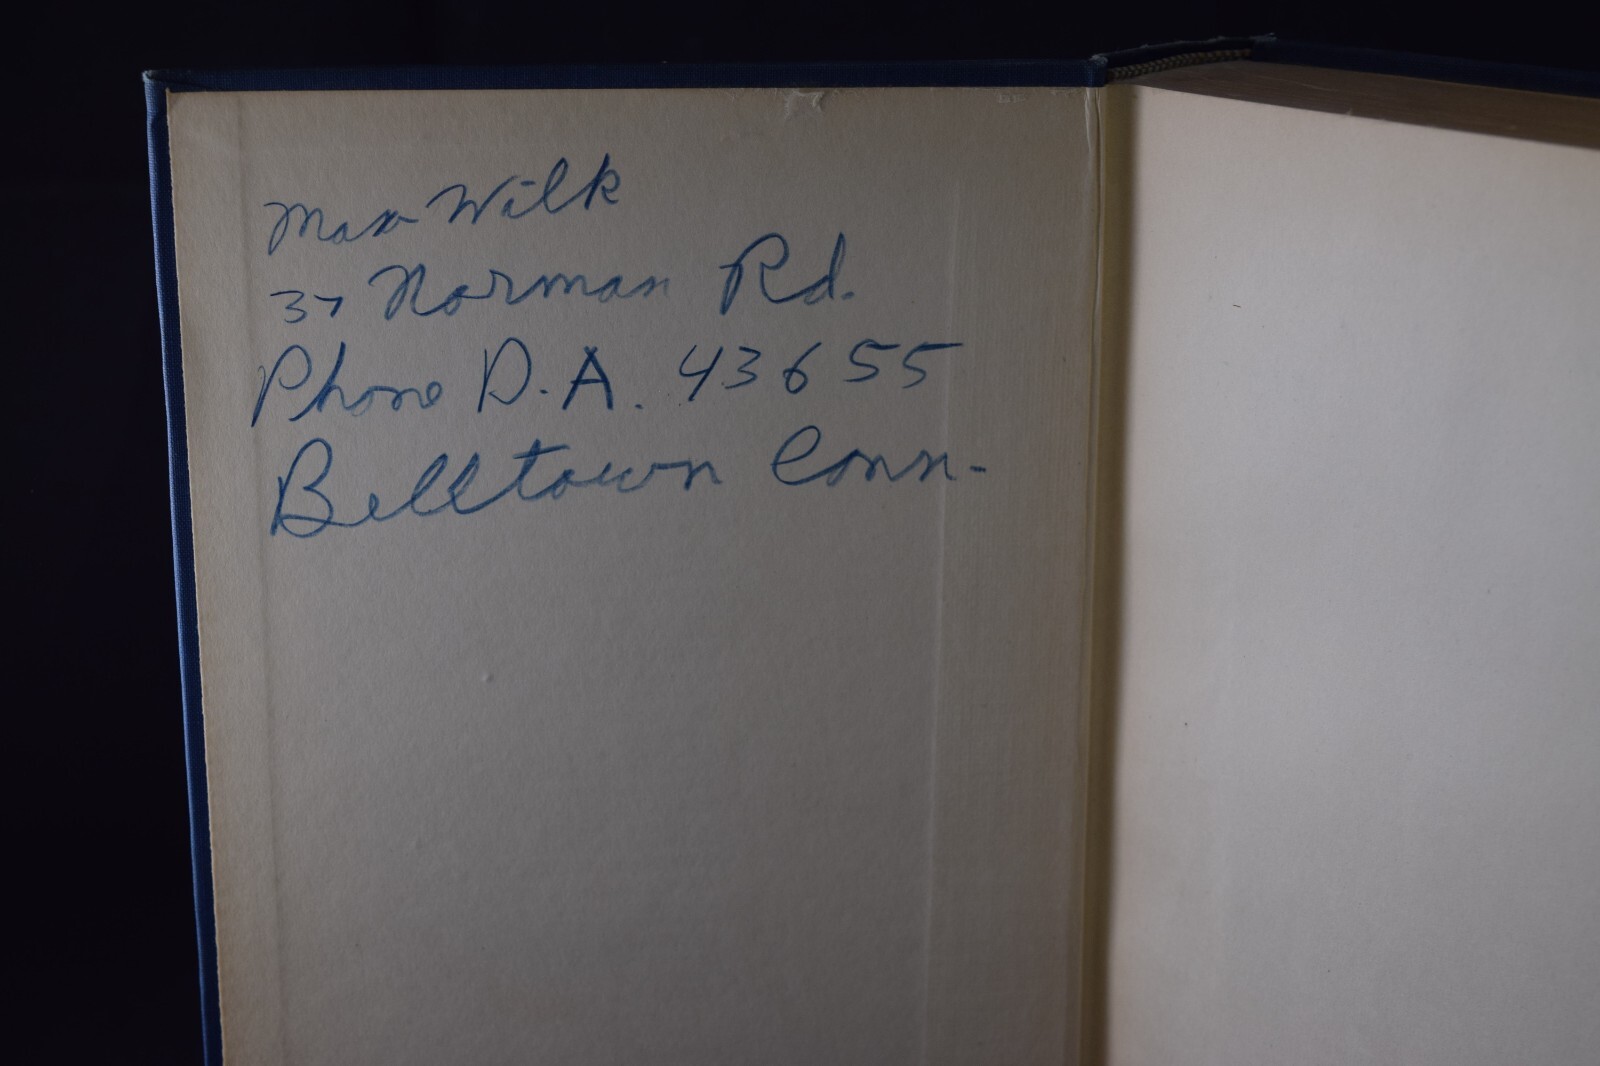 Max Wilk
37 Norman Rd.
Phone D.A. 43655
Belltown Conn-